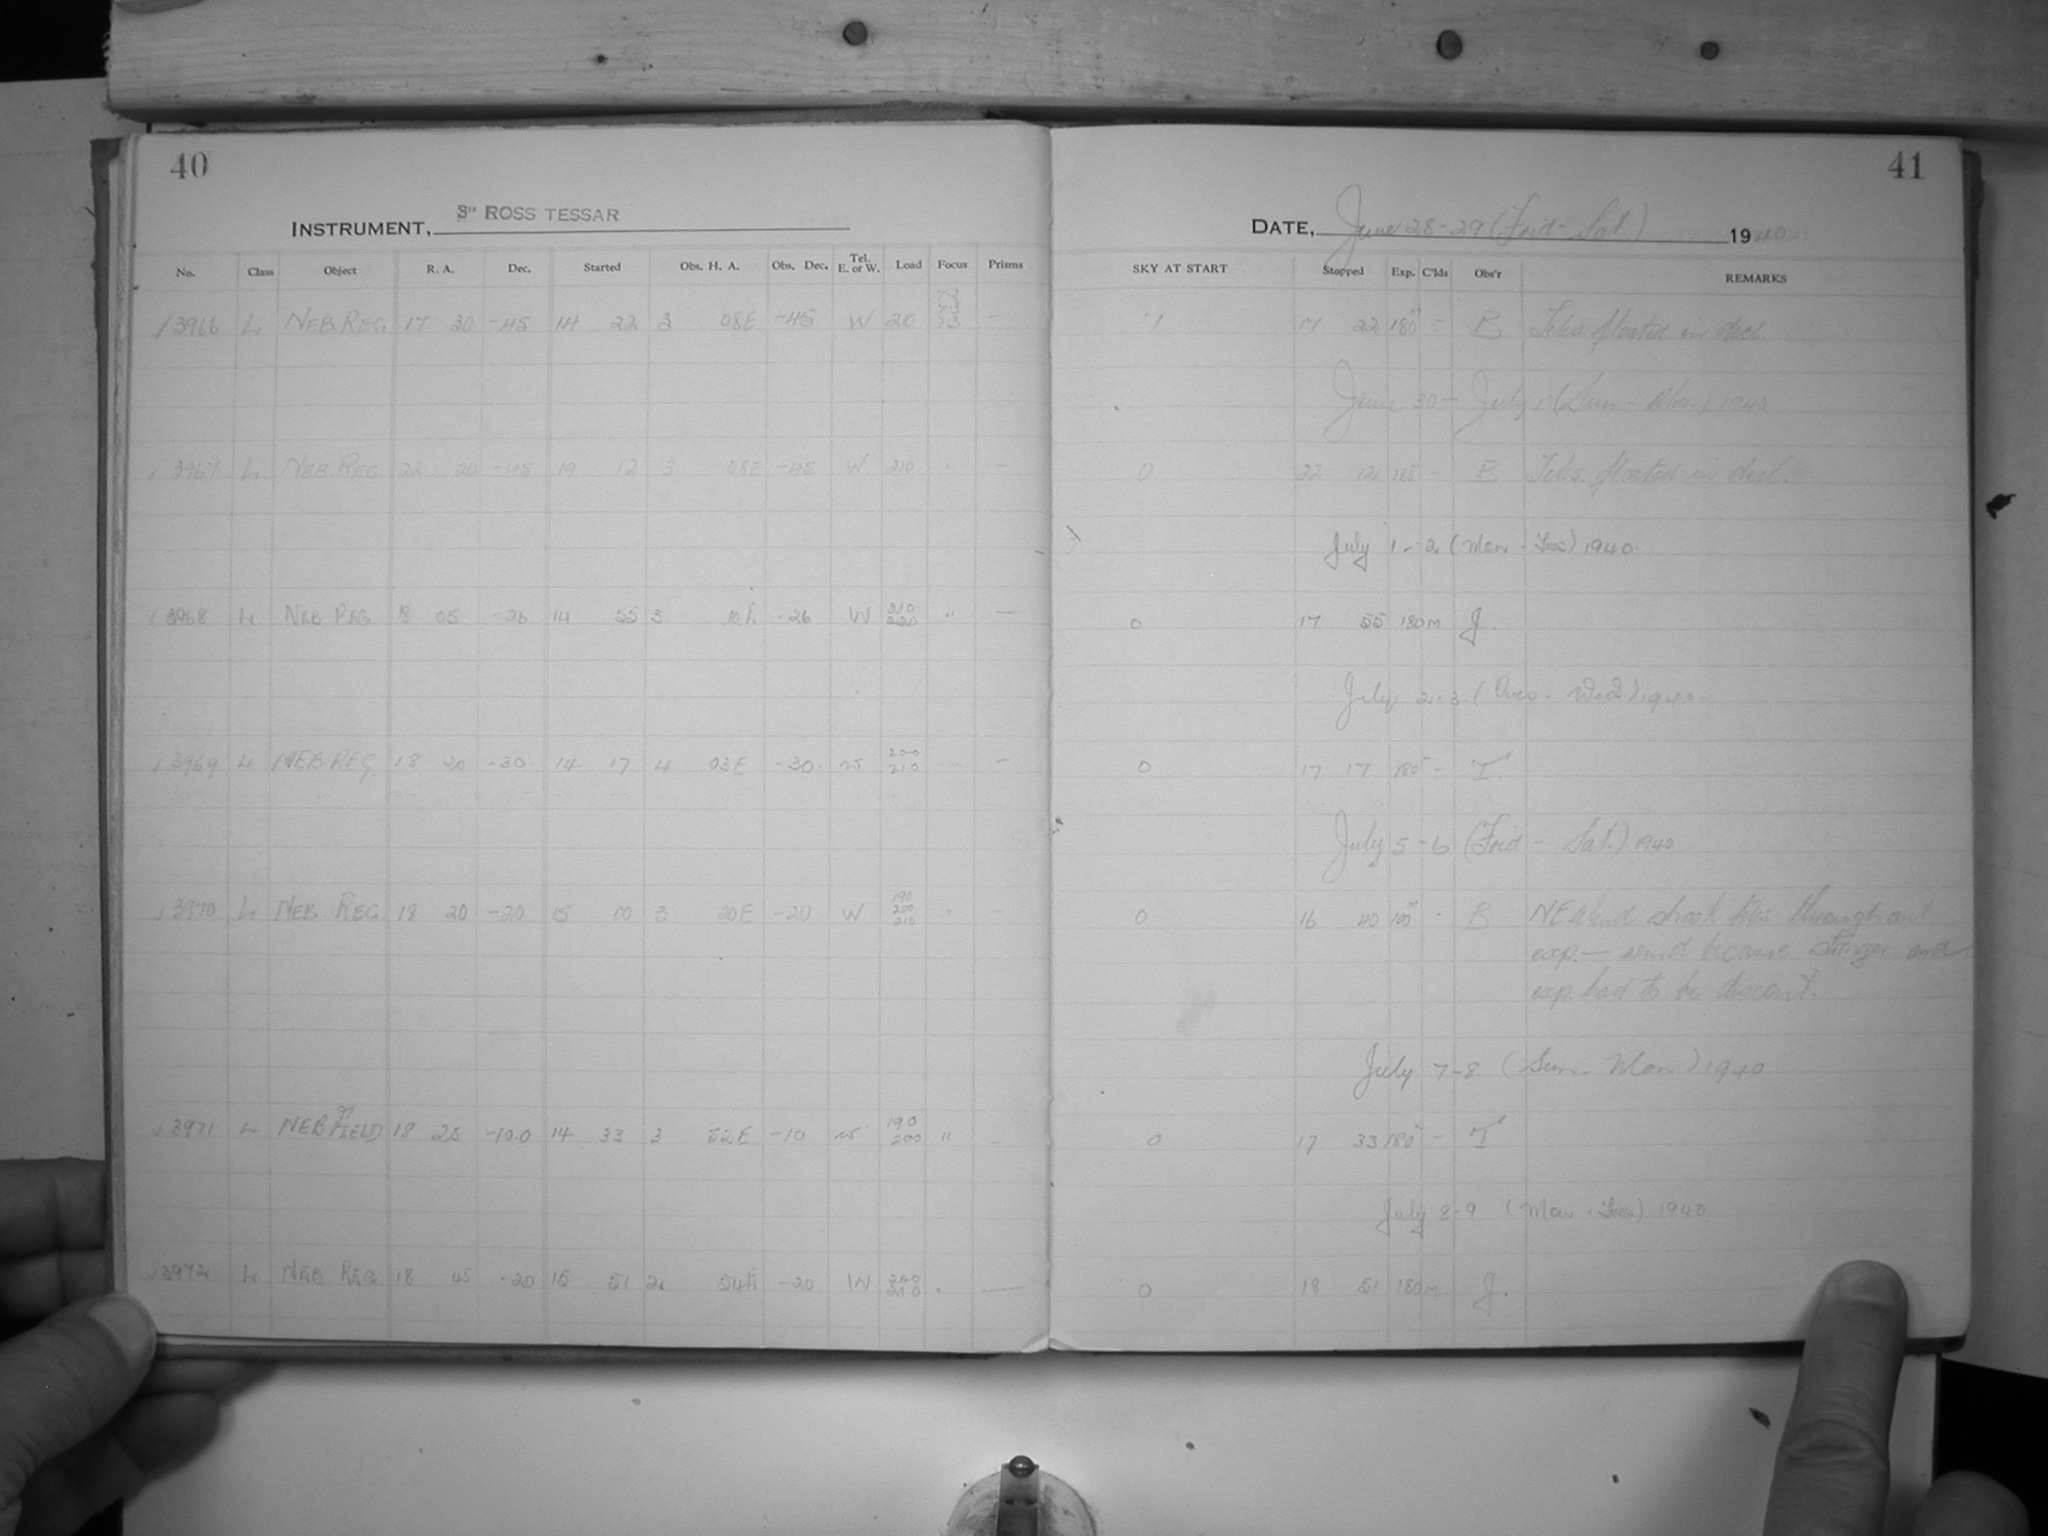 40
INSTRUMENT, 3" ROSS TESSAR
No. Class Object R. A. Dec. Started Obs. H. A. Obs. Dec. Tel. E. or W. Load Focus Prisms
3966 L NEB.REG 17 30 -45 14 22 3 08E -45 W 210 —
3967 L NEB.REG 22 20 -45 19 12 3 08E -45 W 210 " —
3968 L NEB REG 18 05 -26 14 55 3 10E -26 W 210 220 " —
3969 L NEB.REG 18 20 -30 14 17 4 03E -30 W 200 210 " —
3970 L NEB REG 18 20 -20 15 00 3 20E -20 W 190 200 210 "
3971 L NEB FIELD 18 25 -10.0 14 33 3 52E -10 W 190 200 "
3972 L NEB REG 18 45 -20 15 51 2 54E -20 W 200 210 " —
41
DATE, June 28-29 (Frid - Sat.) 1940
SKY AT START Stopped Exp. C'lds Obs'r REMARKS
1 17 22 180m - B Teles. floated in decl.
June 30 - July 1 (Sun - Mon) 1940
0 22 12 180 - B Teles. floated in decl.
July 1-2 (Mon - Tues) 1940.
0 17 55 180m J.
July 2-3 (Tues - Wed) 1940.
0 17 17 180 - T.
July 5-6 (Frid - Sat.) 1940
0 16 40 100m - B NE wind shook teles throughout
exp. — wind became stronger and
exp. had to be discont.
July 7-8 (Sun - Mon.) 1940
0 17 33 180 - T
July 8-9 (Mon - Tues) 1940
0 18 51 180m J.